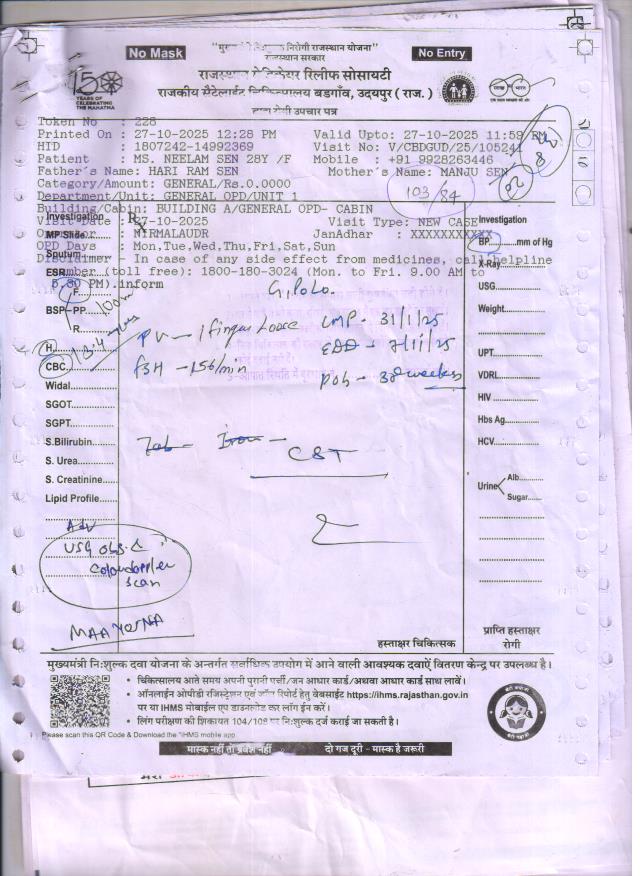 No Mask
"मुख्यमंत्री निःशुल्क निरोगी राजस्थान योजना"
No Entry
राजस्थान सरकार
राजस्थान मेडिकेयर रिलीफ सोसायटी
राजकीय सैटेलाईट चिकित्सालय बडगाँव, उदयपुर ( राज. )
150
YEARS OF
CELEBRATING
THE MAHATMA
रोगी उपचार पत्र
Token No : 228
Printed On : 27-10-2025 12:28 PM Valid Upto: 27-10-2025 11:59 PM
HID : 1807242-14992369 Visit No: V/CBDGUD/25/105241
Patient : MS. NEELAM SEN 28Y /F Mobile : +91 9928263446
Father's Name: HARI RAM SEN Mother's Name: MANJU SEN
Category/Amount: GENERAL/Rs.0.0000
103/84
Department/Unit: GENERAL OPD/UNIT 1
Building/Cabin: BUILDING A/GENERAL OPD- CABIN
Visit Date : 27-10-2025 Visit Type: NEW CASE
NIRMALAUDR JanAadhar : XXXXXXXXXX
OPD Days : Mon,Tue,Wed,Thu,Fri,Sat,Sun
Disclaimer - In case of any side effect from medicines, call helpline
number (toll free): 1800-180-3024 (Mon. to Fri. 9.00 AM to
5.30 PM).inform
Investigation
Rx
MP Slide
Sputum
ESR
F.
BSP PP
R
H.
CBC
Widal
SGOT
SGPT
S.Bilirubin
S. Urea
S. Creatinine
Lipid Profile
G1P0L0
PV - 1 finger loose LMP - 31/1/25
EDD - 7/11/25
FSH - 156/min
POG - 38 weeks
Tab - Iron -
CST
Adv
USG obs &
colordoppler
scan
MAA YOJNA
Investigation
BP mm of Hg
X-Ray
USG
Weight
UPT
VDRL
HIV
Hbs Ag
HCV
Urine Alb.
Sugar
हस्ताक्षर चिकित्सक
प्राप्ति हस्ताक्षर
रोगी
मुख्यमंत्री निःशुल्क दवा योजना के अन्तर्गत सर्वाधिक उपयोग में आने वाली आवश्यक दवाऐं वितरण केन्द्र पर उपलब्ध है।
• चिकित्सालय आते समय अपनी पुरानी पर्ची/जन आधार कार्ड/अथवा आधार कार्ड साथ लावें।
• ऑनलाईन ओपीडी रजिस्ट्रेशन एवं जाँच रिपोर्ट हेतु वेबसाईट https://ihms.rajasthan.gov.in
पर या IHMS मोबाईल एप डाउनलोड कर लॉग ईन करें।
• लिंग परीक्षण की शिकायत 104/108 पर निःशुल्क दर्ज कराई जा सकती है।
Please scan this QR Code & Download the "IHMS mobile app
मास्क नहीं तो प्रवेश नहीं
दो गज दूरी - मास्क है जरूरी